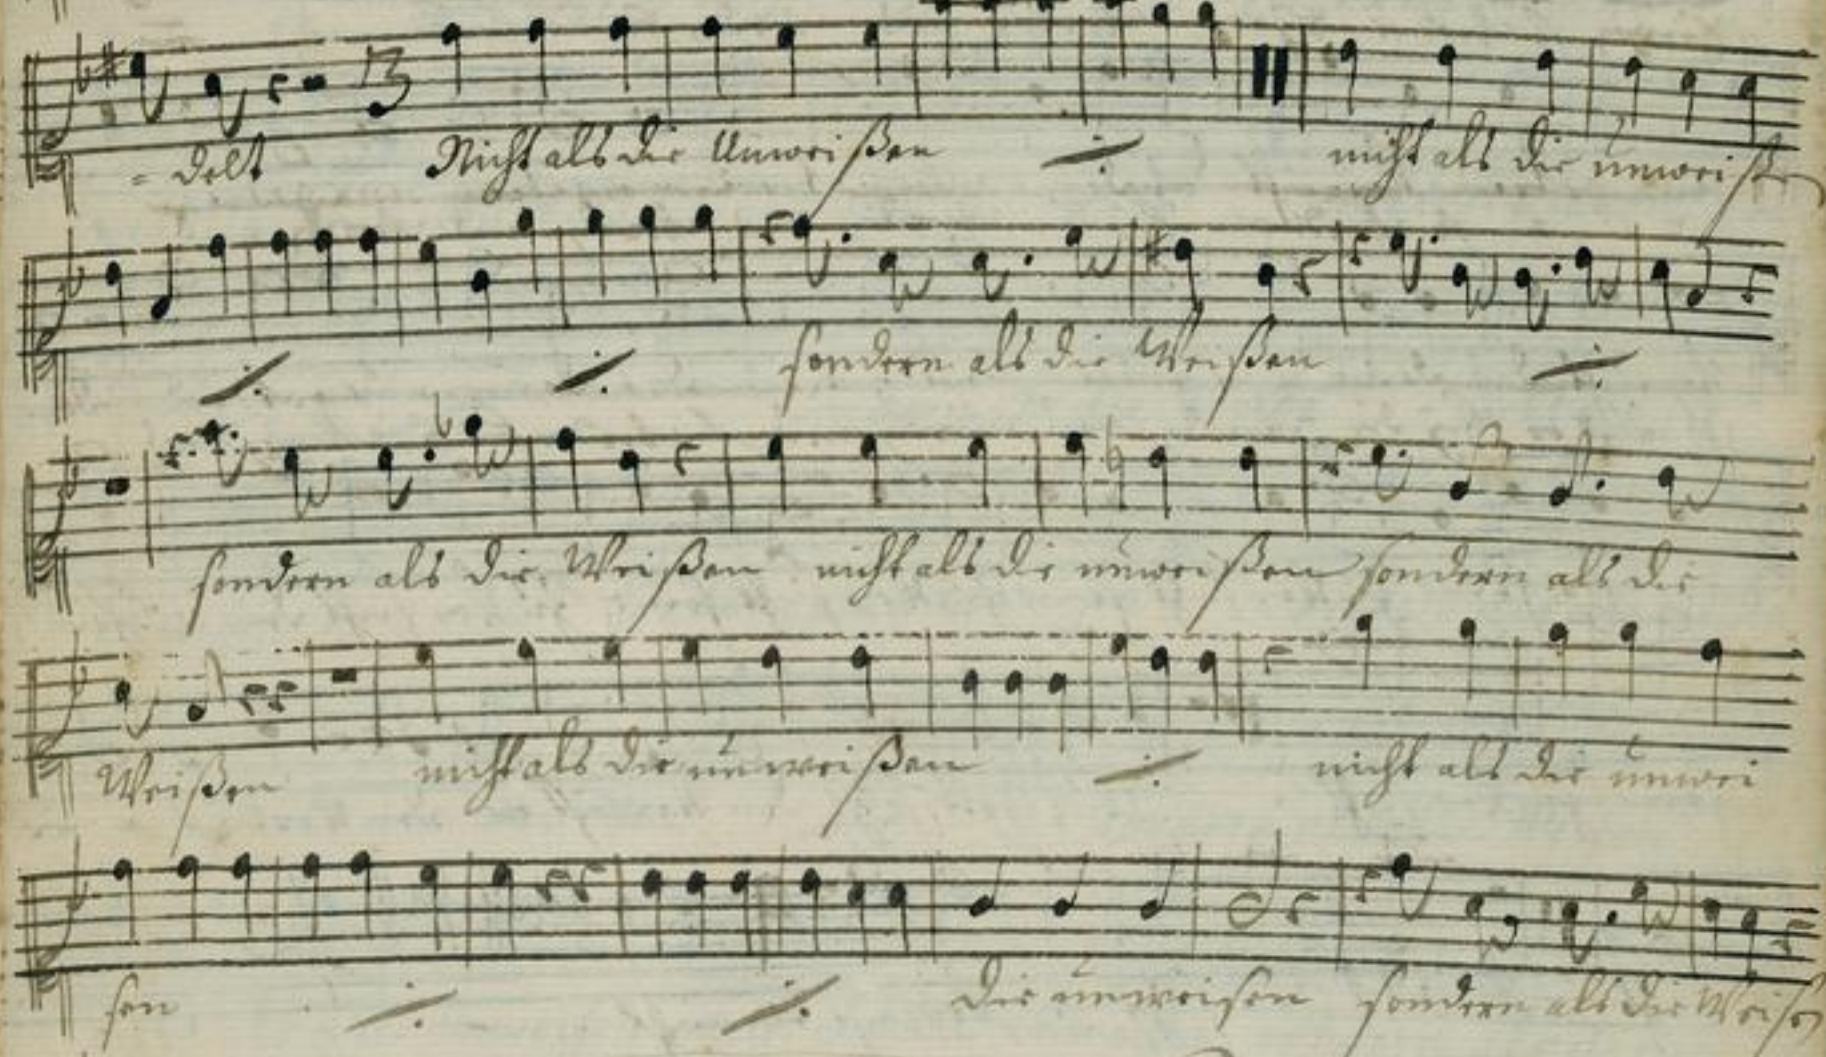 = delt Nicht als die Unweißen ⁒ nicht als die unweißen
⁒ ⁒ sondern als die Weißen ⁒
sondern als die Weißen nicht als die unweißen sondern als die
Weißen nicht als die unweißen ⁒ nicht als die unwei
sen ⁒ ⁒ die unweisen sondern als die Weisen